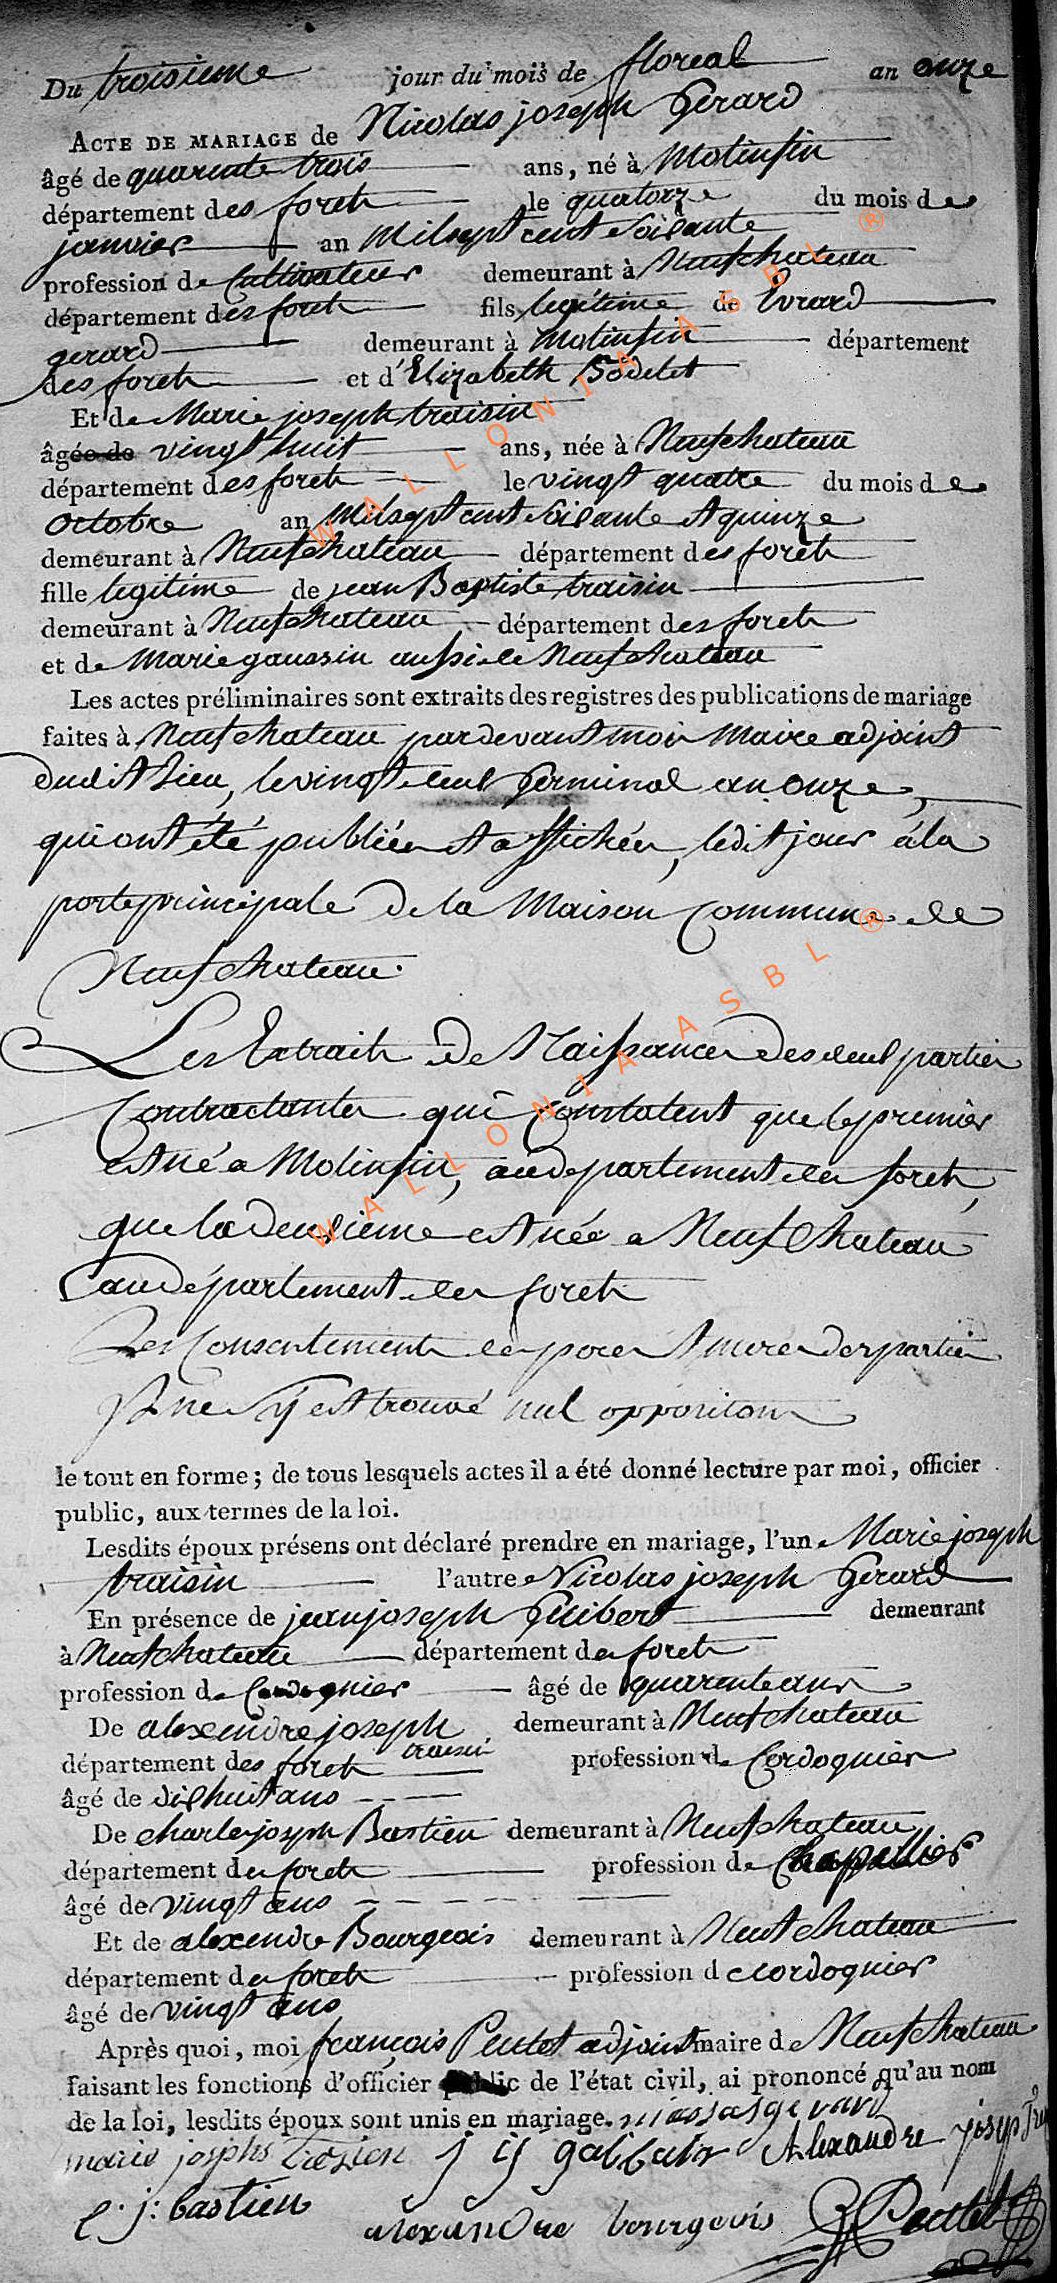 Du troisieme jour du mois de floreal an onze
ACTE DE MARIAGE de Nicolas joseph Gerard
âgé de quarente trois ans, né à Molinfin
département des foret le quatorze du mois de
janvier an Milsept cent Soisante
profession de Cultivateur demeurant à Neufchateau
département des foret fils legitime de Evrard
gerard demeurant à Molinfin département
des foret et d'Elizabeth Bodelet
Et de Marie joseph traisin
âgée de vingt huit ans, née à Neufchateau
département des foret le vingt quatre du mois de
octobre an Milsept cent Soisante et quinze
demeurant à Neufchateau département des foret
fille legitime de jean Baptiste traisin
demeurant à Neufchateau département des foret
et de Marie gaussin aussi de Neufchateau
Les actes préliminaires sont extraits des registres des publications de mariage
faites à Neufchateau pardevant moi Maire adjoint
dudit Lieu, le vingt deux Germinal an onze,
qui ont été publiés et affichés, ledit jour à la
porte principale de la Maison Commune de
Neufchateau.
Les Extraits de Naissances des deux parties
Contractantes qui Constatent que le premier
est né a Molinfin, au departement des forets,
que la deuxieme est née a Neufchateau
au département des forets
Les Consentements des peres et meres des parties
et ne s'y est trouvé nul oppositions
le tout en forme; de tous lesquels actes il a été donné lecture par moi, officier
public, aux termes de la loi.
Lesdits époux présens ont déclaré prendre en mariage, l'une Marie joseph
traisin l'autre Nicolas joseph Gerard
En présence de jean joseph Guibert demeurant
à Neufchateau département des foret
profession de Cordognier âgé de quarente ans
De alexendre joseph demeurant à Neufchateau
traisin
département des foret profession de Cordognier
âgé de dishuit ans
De charles joseph Bastien demeurant à Neufchateau
département des foret profession de Chapellier
âgé de vingt ans
Et de alexendre Bourgeois demeurant à Neufchateau
département des foret profession de cordognier
âgé de vingt ans
Après quoi, moi françois Peutet adjoint maire de Neufchateau
faisant les fonctions d'officier public de l'état civil, ai prononcé qu'au nom
de la loi, lesdits époux sont unis en mariage. nicolas gerard
marie josephs j ij Alexandre josep
c. j: bastien alexandre bourgeois Peutet
WALLONIA ASBL ®
WALLONIA ASBL ®